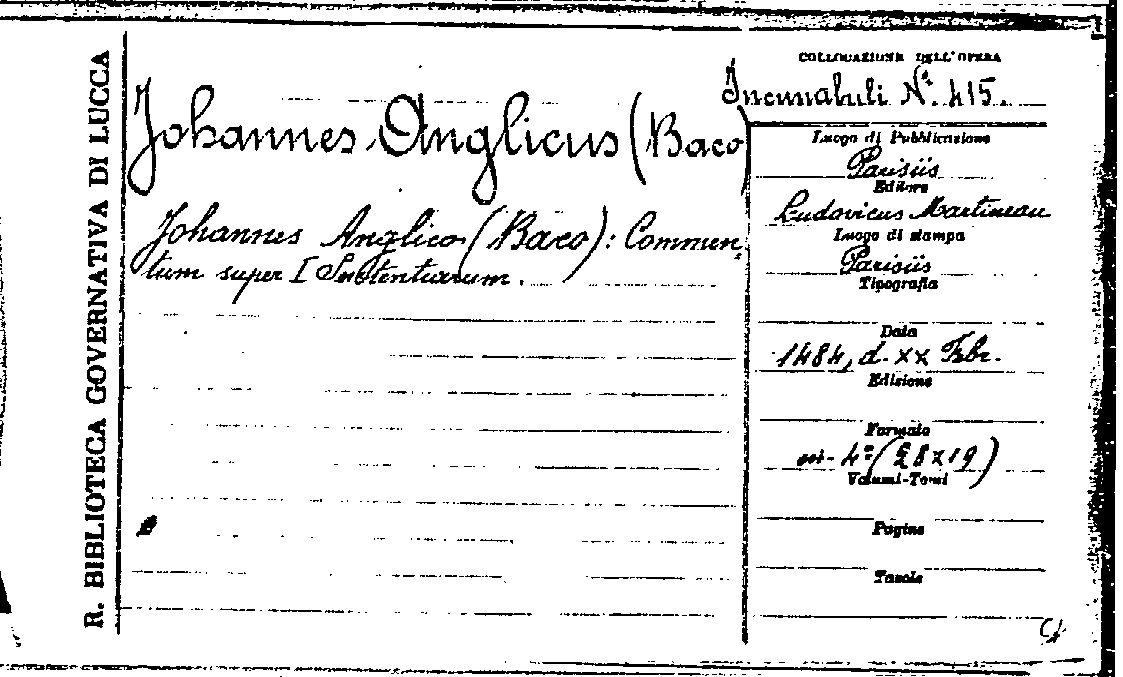 R. BIBLIOTECA GOVERNATIVA DI LUCCA
Johannes Anglicus (Baco)
Johannes Anglico (Baco): Commen,
tum super I Sententiarum.
COLLOCAZIONE DELL'OPERA
Incunabuli N.º 415.
Luogo di Pubblicazione
Parisiis
Editore
Ludovicus Martineau
Luogo di stampa
Parisiis
Tipografia
Data
1484, d. XX Febr.
Edizione
Formato
in-4º (28x19)
Volumi-Tomi
Pagine
Tavole